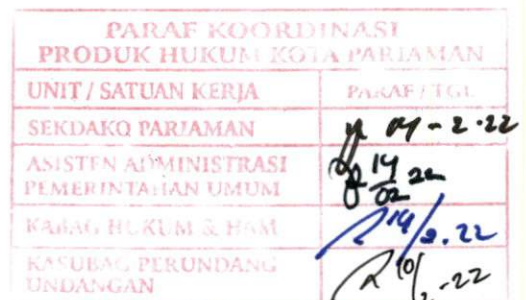 PARAF KOORDINASI
PRODUK HUKUM KOTA PARIAMAN
UNIT / SATUAN KERJA PARAF / TGL
SEKDAKO PARIAMAN 14 - 2 - 22
ASISTEN ADMINISTRASI
PEMERINTAHAN UMUM 14/02 22
KABAG HUKUM & HAM 14/2. 22
KASUBAG PERUNDANG
UNDANGAN 10/ -22